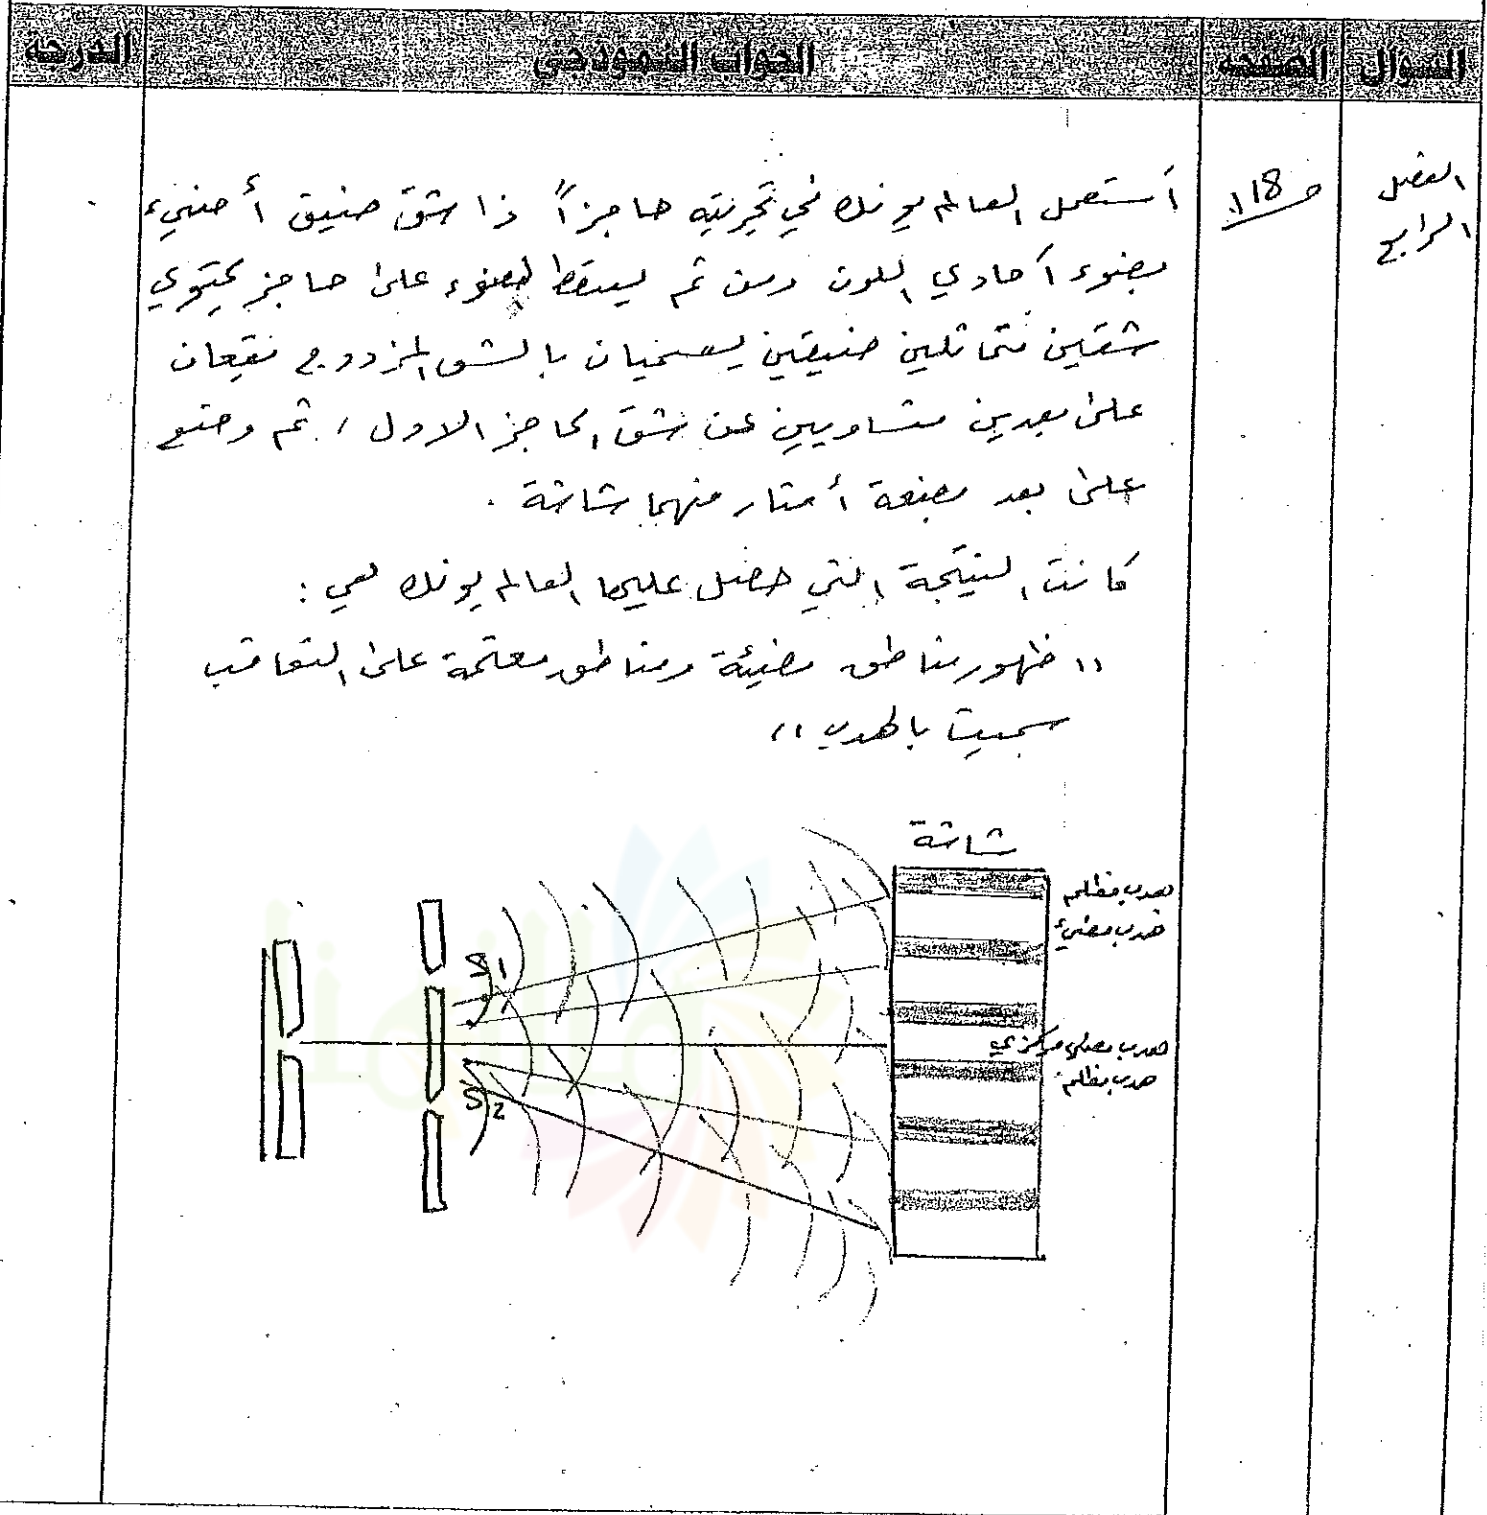 السؤال الصفحة الجواب النموذجي الدرجة
الفصل الرابع
ص 118
أستعمل العالم يونك في تجربته حاجزاً ذا شق ضيق أضيء
بضوء أحادي اللون ومن ثم يسقط الضوء على حاجز يحتوي
شقين متماثلين ضيقين يسميان بالشق المزدوج يقعان
على بعدين متساويين عن شق الحاجز الاول ، ثم وضع
على بعد بضعة أمتار منهما شاشة .
كانت النتيجة التي حصل عليها العالم يونك هي :
" ظهور مناطق مضيئة ومناطق معتمة على التعاقب
سميت بالهدب "
شاشة
هدب مظلم
هدب مضيء
S1
هدب مضيء مركزي
هدب مظلم
S2
ملازمنا